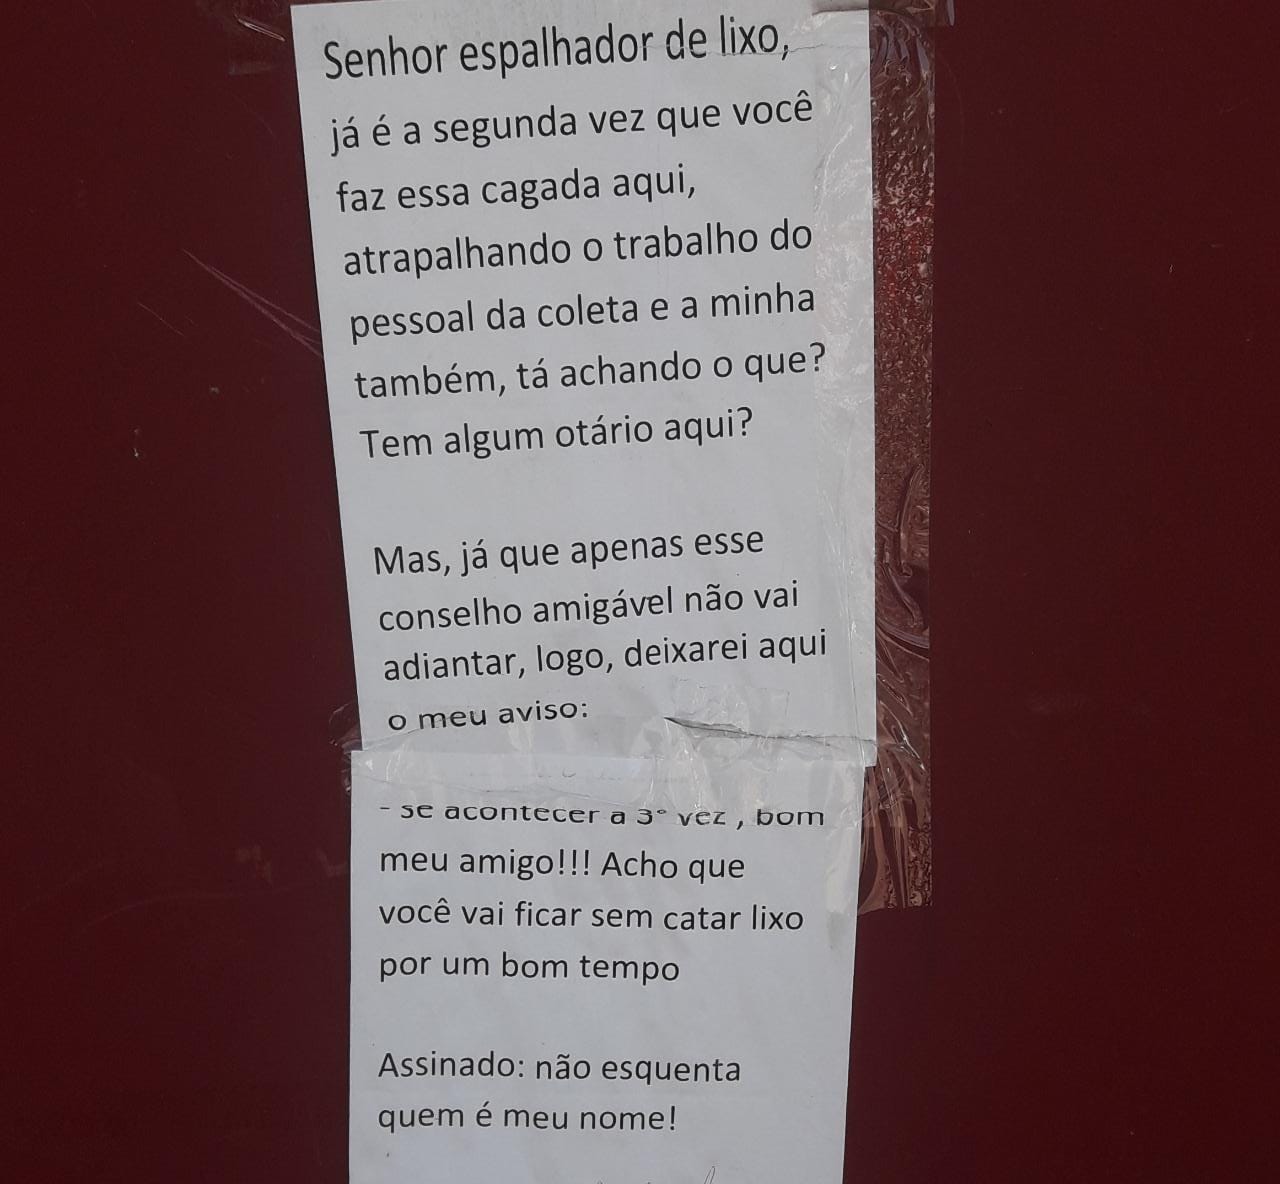 Senhor espalhador de lixo,
já é a segunda vez que você
faz essa cagada aqui,
atrapalhando o trabalho do
pessoal da coleta e a minha
também, tá achando o que?
Tem algum otário aqui?
Mas, já que apenas esse
conselho amigável não vai
adiantar, logo, deixarei aqui
o meu aviso:
- se acontecer a 3° vez , bom
meu amigo!!! Acho que
você vai ficar sem catar lixo
por um bom tempo
Assinado: não esquenta
quem é meu nome!